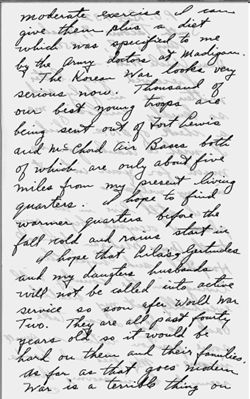 moderate exercise I can
give them plus a diet
which was specified to me
by the Army doctors at Madigan.
The Korean War looks very
serious now. Thousand of
our best young troops are
being sent out of Fort Lewis
and McChord Air Bases both
of which are only about five
miles from my present living
quarters. I hope to find
warmer quarters before the
fall cold and rains start in
I hope that Lilas, Gertrudes
and my daugters husbands
will not be called into active
service so soon after World War
Two. They are all past fourty
years old so it would be
hard on them and their families.
As far as that goes modern
War is a terrible thing on